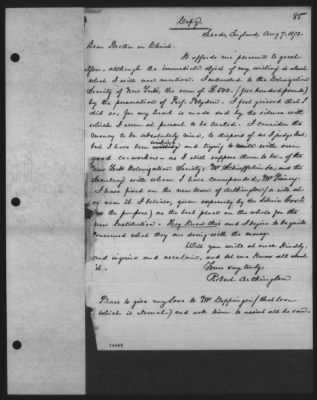 85
Copy.
Leeds, England, Aug 7. 1872
Dear Brother in Christ.
It affords me pleasure to greet
you, although the immediate object of my writing is about
what I will now mention. I entrusted to the Colonization
Society of New York, the sum of £500. (five hundred pounds)
by the presentation of Prof. Blyden. I feel grieved that I
did so, for my heart is made sad by the silence with
which I seem at present to be treated. I consider the
money to be absolutely mine, to dispose of as I judge best,
but I have been working and trying to unite with even
good co-workers as I still suppose them to be of the
New York Colonization Society. Mr Schieffelin &
Secretary with whom I have corresponded, Mr Pinney.
I have fixed on the new town of Arthington (a site at
or near it I believe, given expressly by the Liberia Govt.
for the purpose) as the best place on the whole for the
new Institution. They know this and I desire to be quite
concerned what they are doing with the money
Will you write at once kindly,
and inquire and ascertain, and let me know all about
it.
Yours very truly,
Robert Arthington
Please to give my love to Mr Coppinger (that love
which is eternal) and ask him to assist all he can.